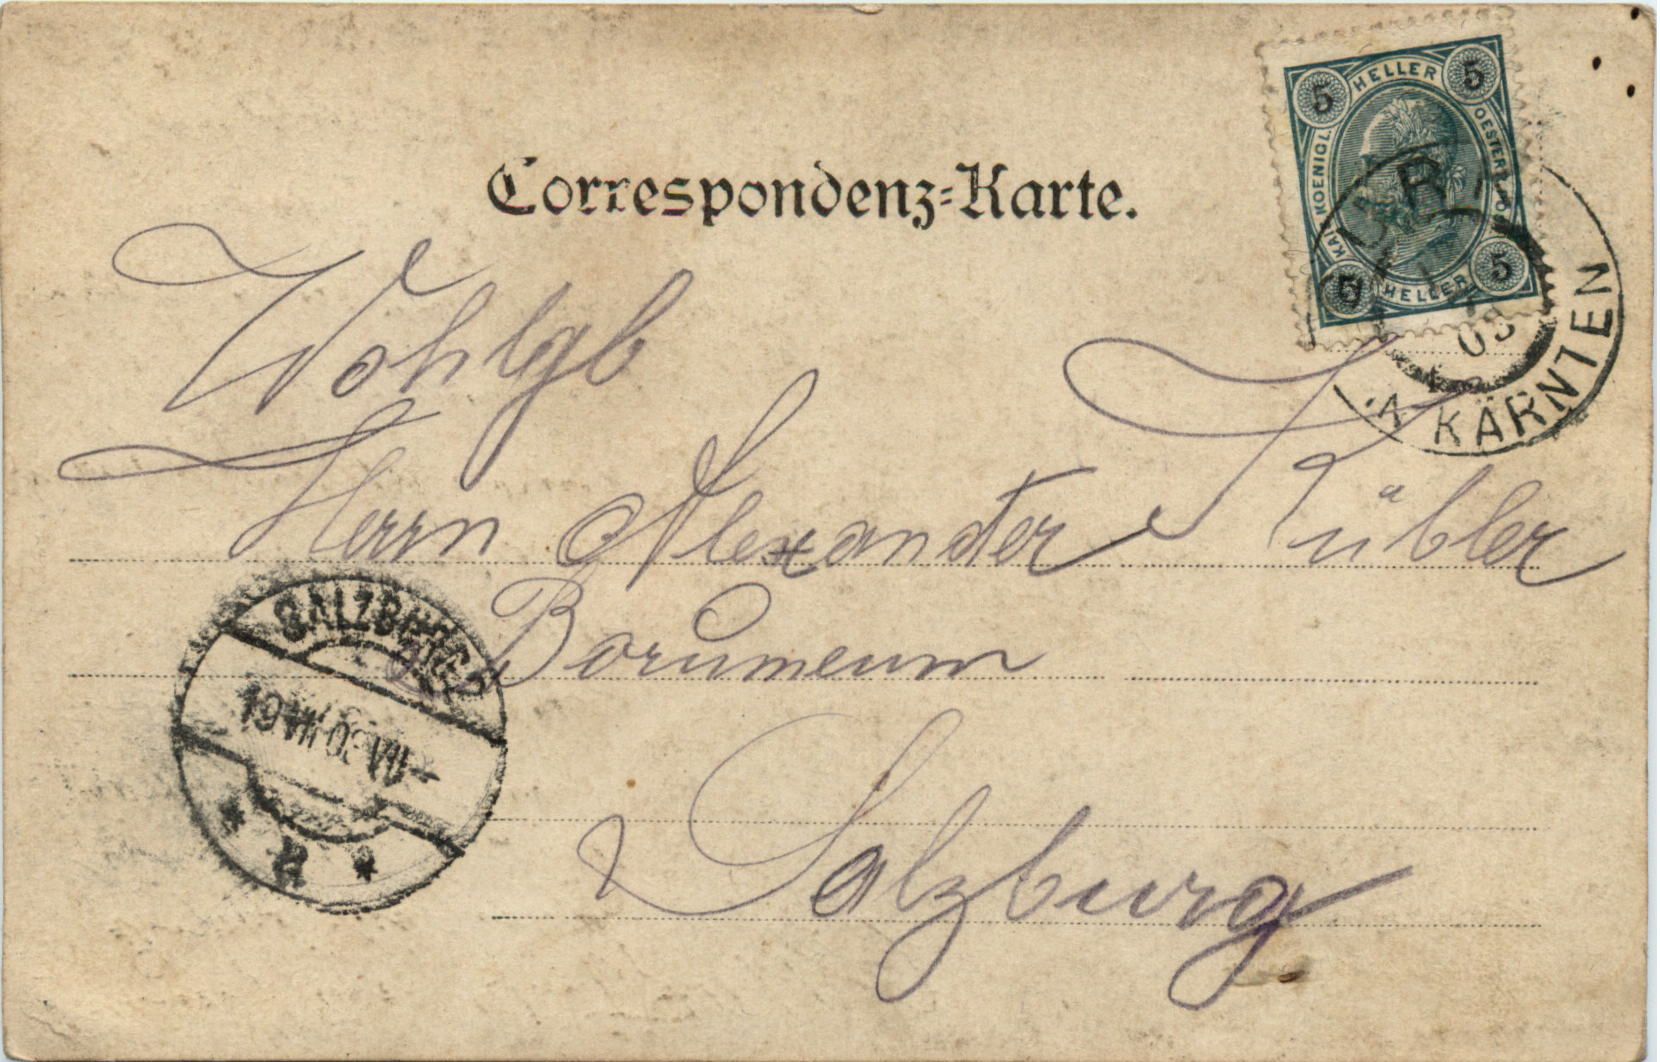 Correspondenz-Karte.
5 HELLER 5
KAIS. KOENIGL.
OESTERR.
5 HELLER 5
03
KÄRNTEN
Wohlgb
Herrn Alexander Kübler
Borumeum
Salzburg
SALZBURG 2